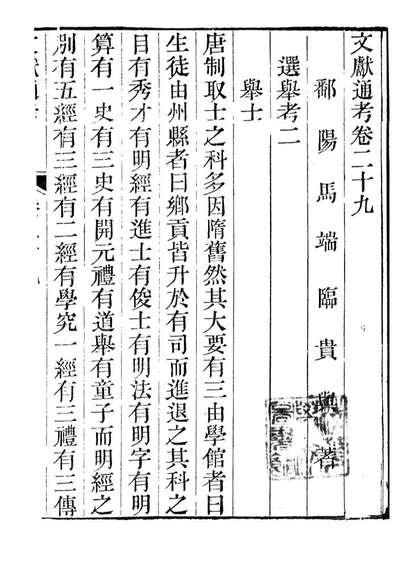 文獻通考卷二十九
鄱陽馬端臨貴與著
選舉考二
舉士
唐制取士之科多因隋舊然其大要有三由學館者曰
生徒由州縣者曰鄉貢皆升於有司而進退之其科之
目有秀才有明經有進士有俊士有明法有明字有明
算有一史有三史有開元禮有道舉有童子而明經之
別有五經有三經有二經有學究一經有三禮有三傳